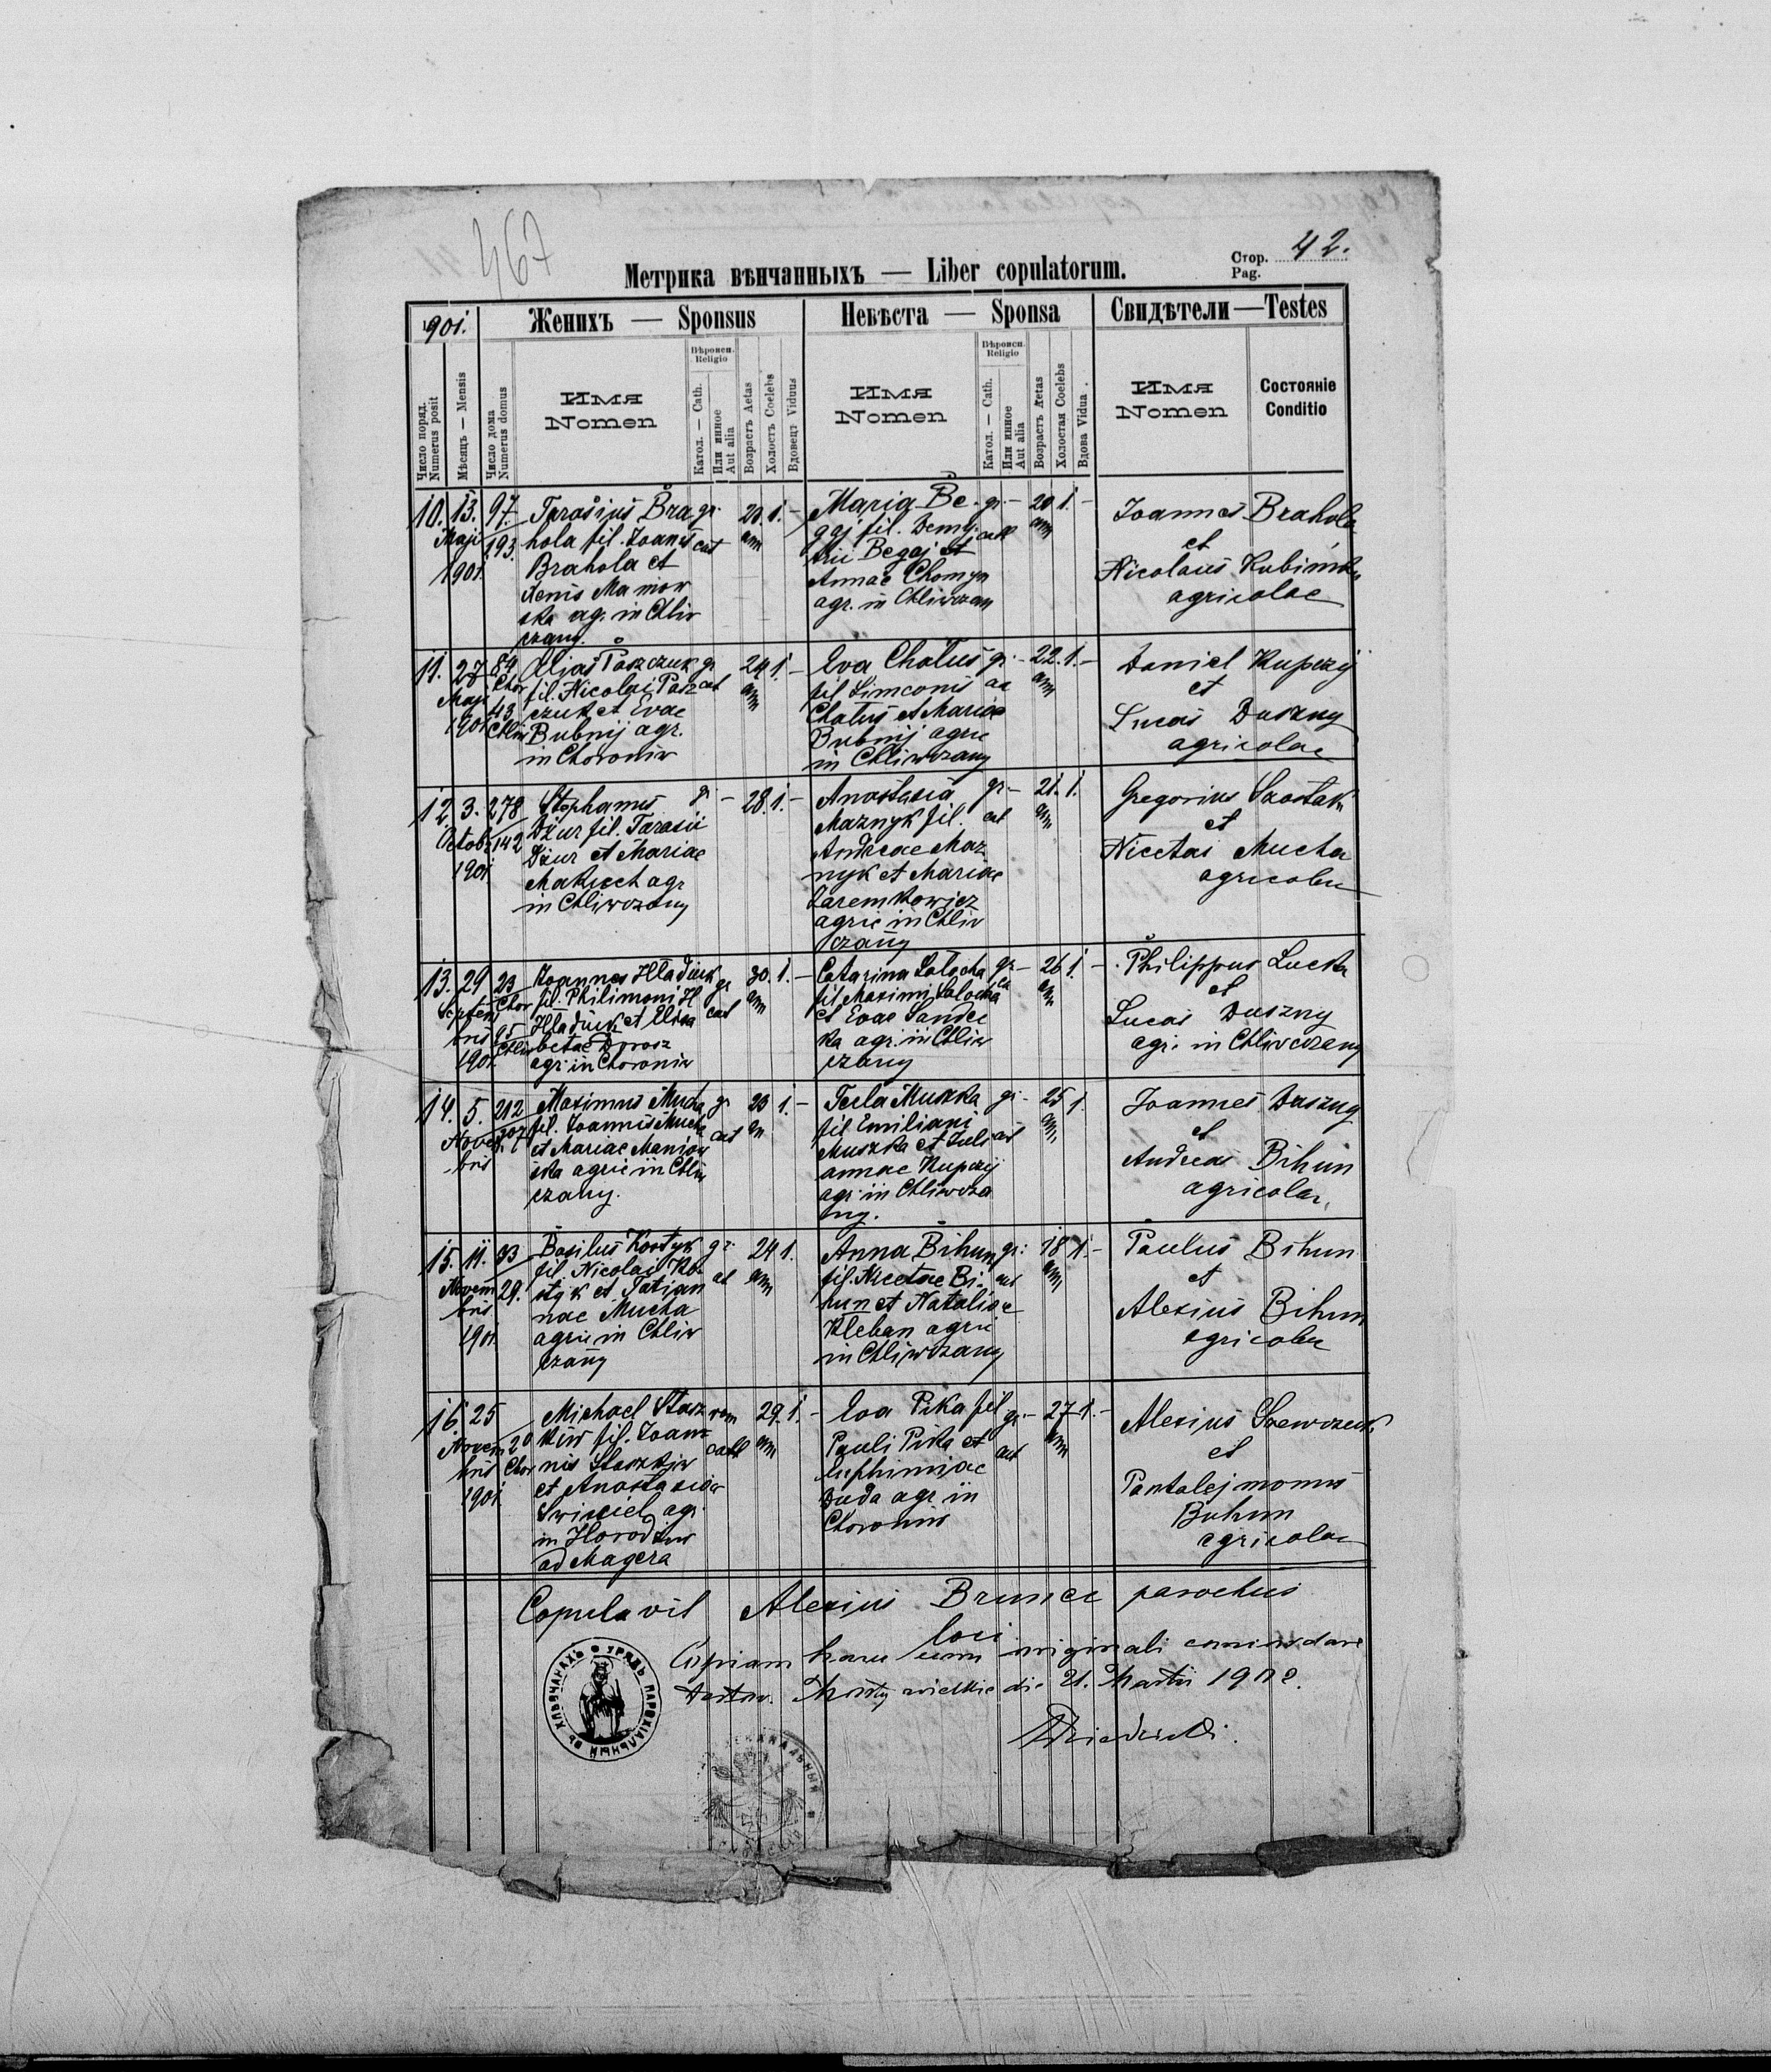 467
Метрика вѣнчанныхъ — Liber copulatorum.
Стор. Pag. 42.
1901.
Женихъ — Sponsus
Невѣста — Sponsa
Свидѣтели — Testes
Число поряд. Numerus posit
Мѣсяцъ — Mensis
Число дома Numerus domus
Имя Nomen
Вѣроисп. Religio
Катол. — Cath.
Или инное Aut alia
Возрастъ Aetas
Холостъ Coelebs
Вдовецъ Viduus
Имя Nomen
Вѣроисп. Religio
Катол. — Cath.
Или инное Aut alia
Возрастъ Aetas
Холостая Coelebs
Вдова Vidua
Имя Nomen
Состояніе Conditio
10. 13. Maji 1901
97. 193.
Tarasius Bra
hola fil. Joanis
Brahola et
Xenis Maniow
ska ag. in Chliw
czany.
gr. cat
20. ann
1. –
Maria Be
gaj fil. Demy
trii Begaj et
Annae Chomyn
agr. in Chliwczan
gr. – cath
20 ann
1. –
Joannes Brahola
et
Nicolaus
agricolae
11. 27 Maji 1901
84 Chor
43 Chliw
Elias Paszczuk
fil. Nicolai Pasz
czuk et Evae
Bubnij agr.
in Choroniw
gr cat
24 ann
1. –
Eva Chatus
fil Simeonis
Chatus et Mariae
Bubnij agric
in Chliwczany
gr. –
22. ann
1. –
Daniel Kupczij
et
Lucas Duszny
agricolae
12. 3. Octob 1901
278 142
Stephanus
Dżur fil. Tarasii
Dżur et Mariae
agr
in Chliwczany
gr. –
28. 1. –
Anastasia
Maznyk fil.
Andreae Maz
nyk et Mariae
Jaremkowicz
agric in Chliw
czany
gr. – cat
21. ann
1.
Gregorius Szostak
et
Nicetas Mucha
agricolae
13. 29 Septem
bris 1901
23 Chor
95 Chliw
Joannes Hładiuk
fil. Philimoni H
Hładiuk et Elisa
betae Dorosz
agr in Choroniw
gr cat
30. ann
1. –
Catarina Salocha
fil Maximi Salocha
et Evae Sandec
ka agr. in Chliw
czany
gr –
26 ann
1. –
Philippus Lucka
et
Lucas Duszny
agr. in Chliwczany
14. 5. Novem
bris
212 207
Maximus Mucha
fil. Joannis Mucha
et Mariae Maniow
ska agric in Chliw
czany.
gr cat
23 an
1. –
Tecla Muszka
fil Emiliani
Muszka et Juli
annae Kupczij
agr in Chliwcza
ny.
gr. – cat
25 an.
1
Joannes Duszny
et
Andreas Bihun
agricolae.
15. 11. Novem
bris 1901
33 29.
Basilius Kostyk
fil. Nicolai Ko
styk et Tatian
nae Mucha
agric in Chliw
czany
gr. cat
24 ann
1.
Anna Bihun
fil. Nicetae Bi
hun et Nataliae
Kleban agric
in Chliwczany
gr. cat
18 ann
1. –
Paulus Bihun
et
Alexius Bihun
agricolae
16 25 Novem
bris 1901
20 Chor
Michael Stasz
kiw fil. Joan
nis Staszkiw
et Anastasiae
agr.
in Horodziw
ad Magera
rom cath
29. ann
1. –
Eva Pika fil
Pauli Pika et
Euphimiae
Duda agr in
Choroniw
gr. – cat
27 ann
1. –
Alexius Szewczuk
et
Pantalejmonus
Buhun
agricolae
Copulavit Alexius Brunec parochus
loci
Copiam hanc cum originali concordare
testor. Mosty wielkie die 21. Martii 1902.
УРЯДЪ ПАРОХІАЛЬНЫЙ ВЪ ХЛѢВЧАНАХЪ